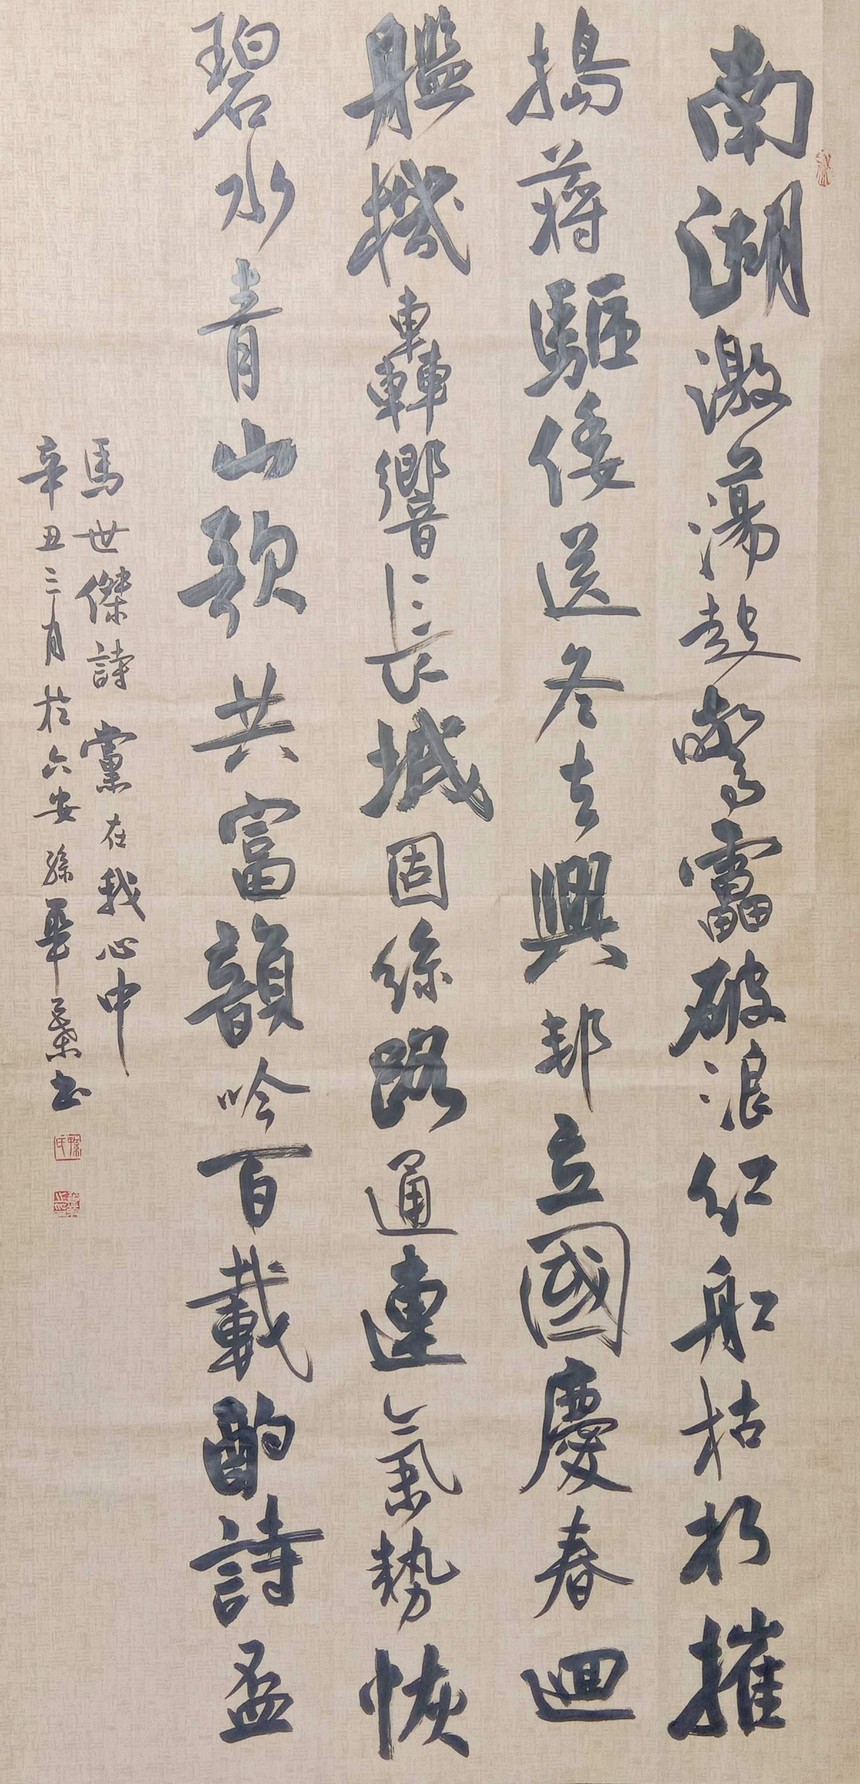 南湖激蕩起驚靁破浪红船枯朽摧
搗蔣驅倭送冬去興邦立國慶春迴
艦機轟響長城固絲路通連氣勢恢
碧水青山歌共富韻吟百載酌詩盈
馬世傑詩黨在我心中
辛丑三月於六安孫華業书